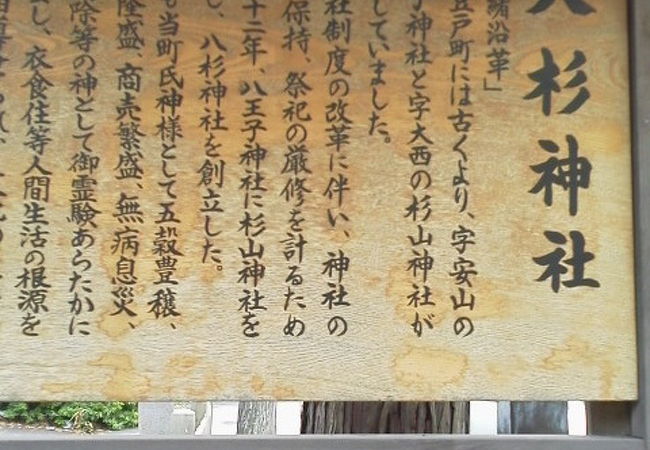 八杉神社
緒沿革」
戸町には古くより、字安山の
子神社と字大西の杉山神社が
していました。
社制度の改革に伴い、神社の
保持、祭祀の厳修を計るため
十三年、八王子神社に杉山神社を
し、八杉神社を創立した。
も当町氏神様として五穀豊穣、
隆盛、商売繁盛、無病息災、
除等の神として御霊験あらたかに
し、衣食住等人間生活の根源を